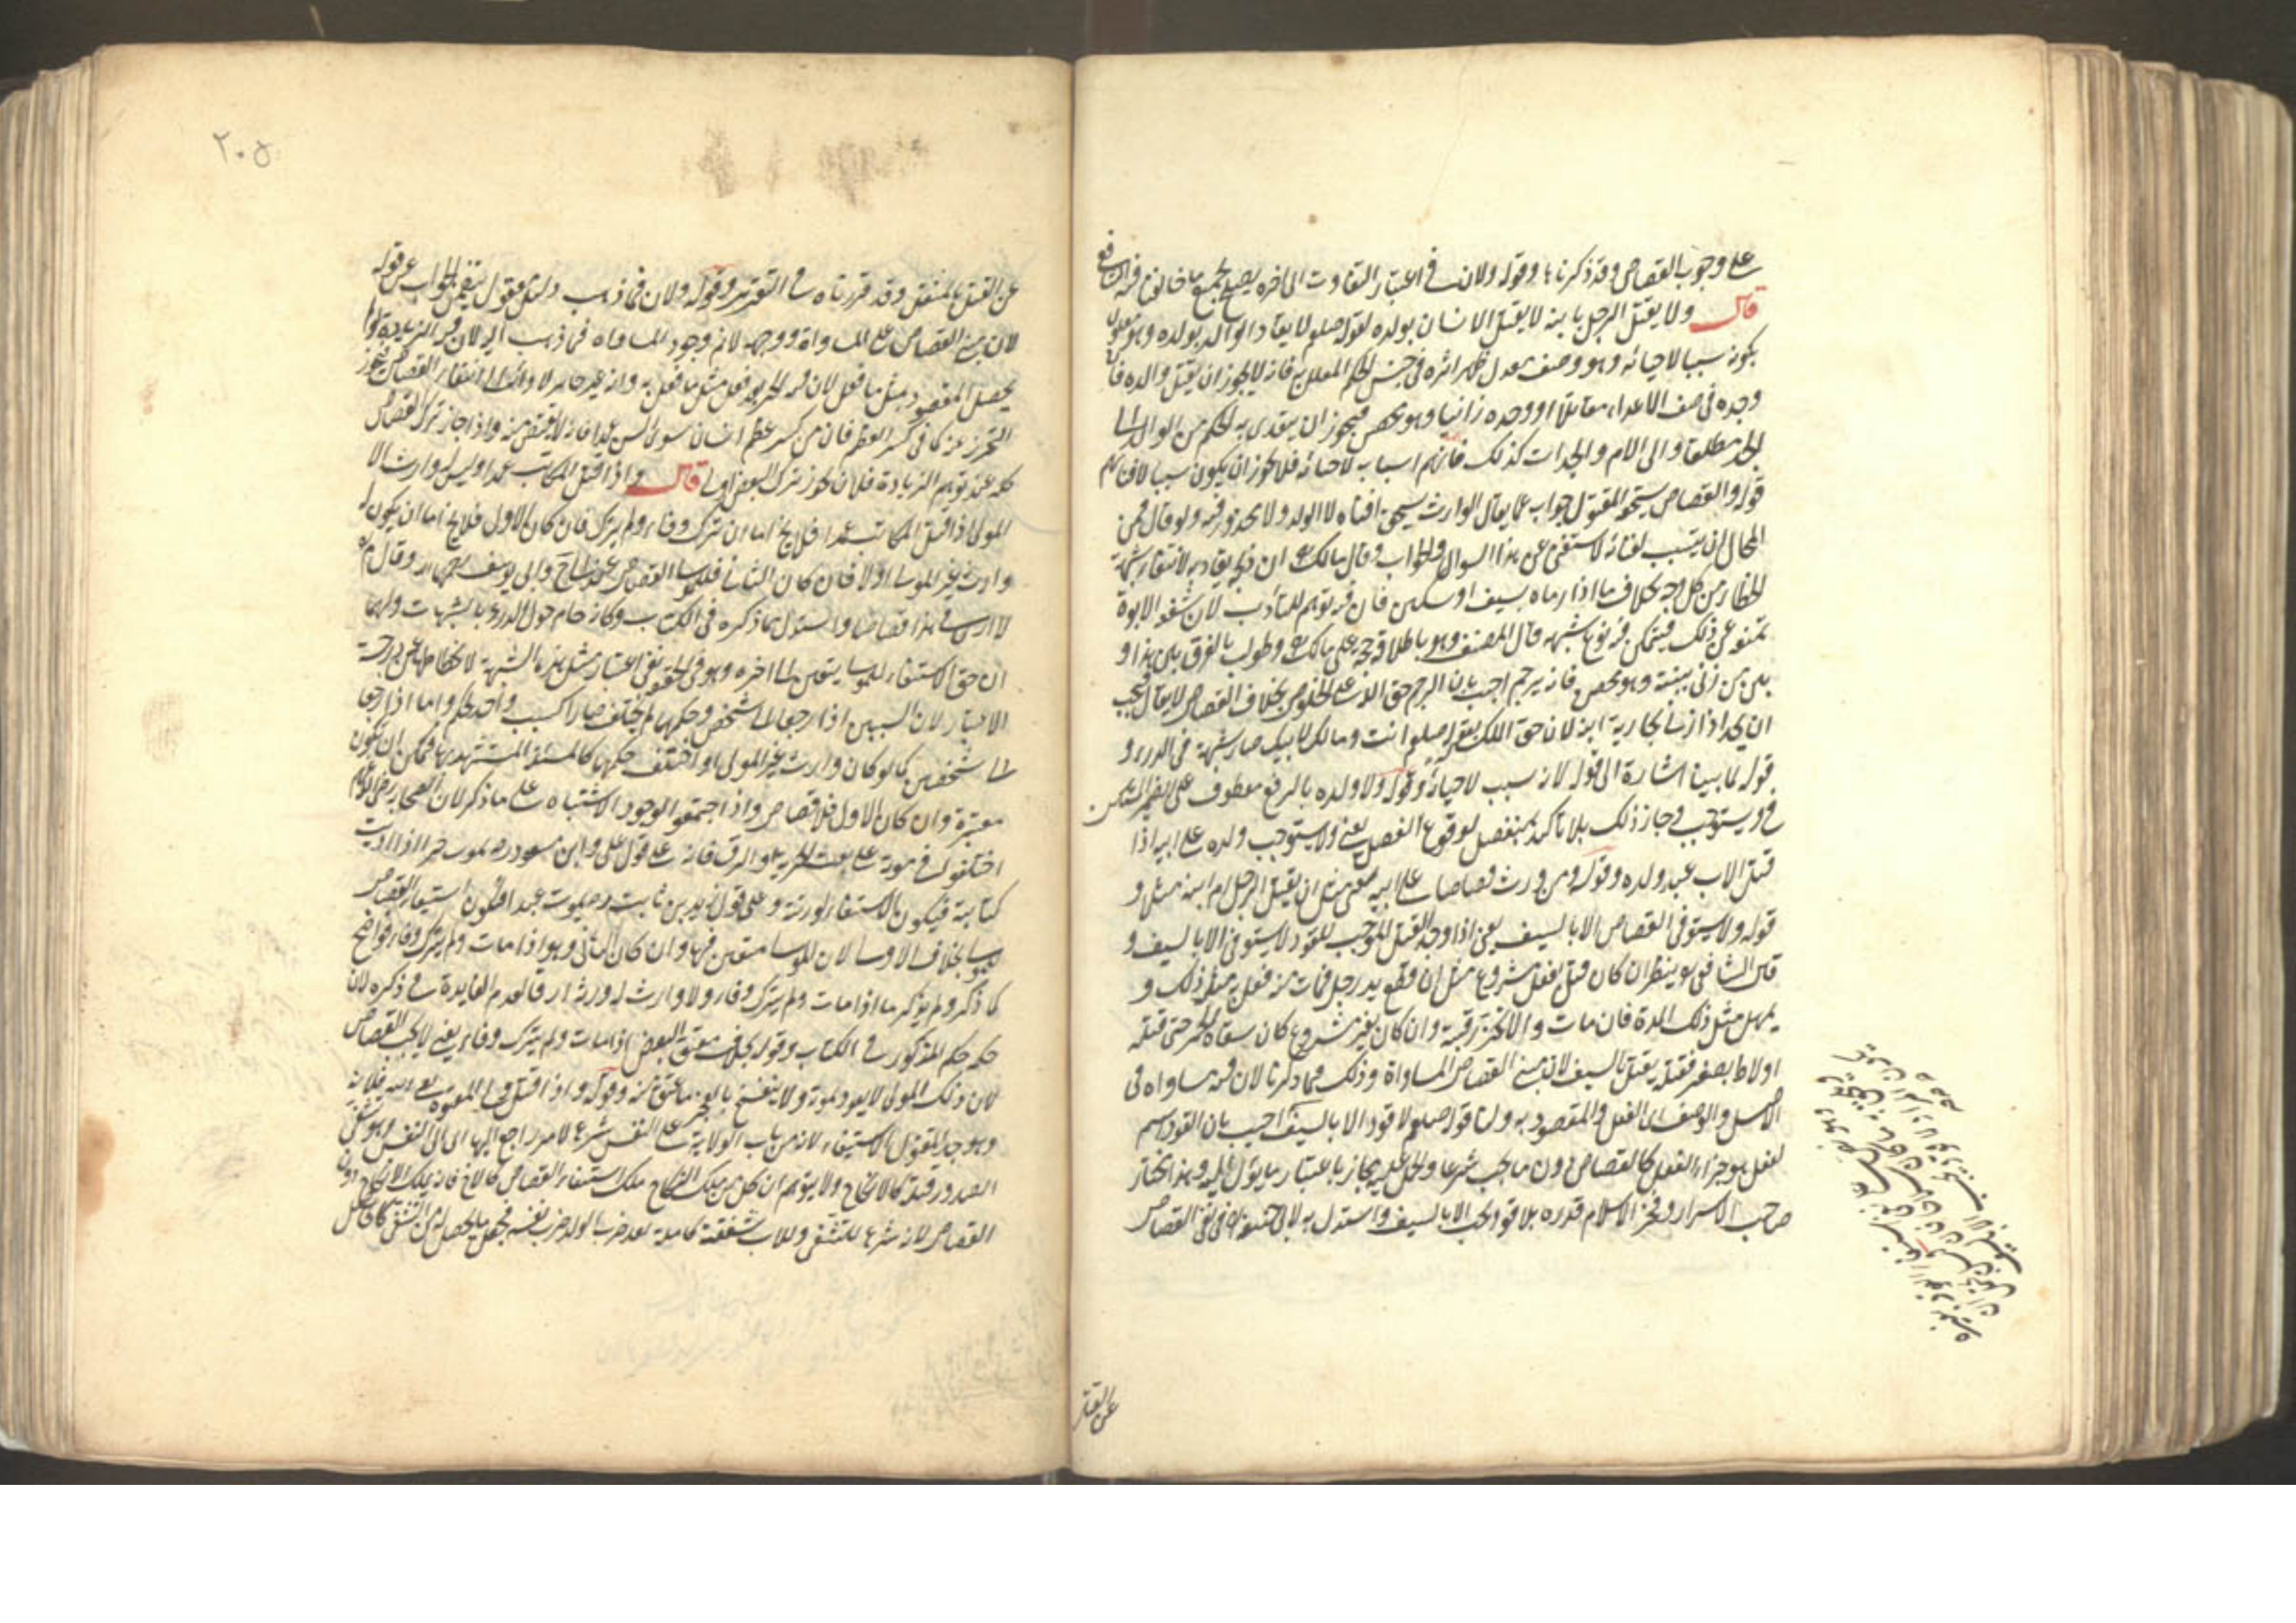 على وجوب القصاص وقد ذكرناه وقوله ولان في اعتبار التفاوت الى اخره يصلح لجميع ما خالفنا فيه الشافعي
قال ولا يقتل الرجل بابنه لا يقتل الانسان بولده لقوله صلعم لا يقاد الوالد بولده وهو معلول
بكونه سببا لاحيائه وهو وصف معدل ظهر اثره في جنس الحكم المعلل به فانه لا يجوز ان يقتل والده فان
وجده في صف الاعداء مقاتلا او وجده زانيا وهو محصن فيجوز ان يتعدى به الحكم من الوالد الى
الجد مطلقا والى الام والجدات كذلك فانهم اسباب لاحيائه فلا يجوز ان يكون سببا لافنائهم
قوله والقصاص يستحقه المقتول جواب عما يقال الوارث يستحق افناه لا الولد ولا محذور فيه ولو قال فمن
المحال ان يتسبب لفنائه لاستغنى عن هذا السوال والجواب وقال مالك ان ذبحه يقاد به لانتفاء شبهة
الخطأ من كل وجه بخلاف ما اذا رماه بسيف او سكين فان فيه توهم التأديب لان شفقة الابوة
تمنعه عن ذلك فيتمكن فيه نوع شبهة قال المصنف وهو باطلاقه حجة على مالك وطولب بالفرق بين هذا و
بين من زنى ببنته وهو محصن فانه يرجم اجيب بان الرجم حق الله على الخلوص بخلاف القصاص لا يقال فيجب
ان يحد اذا زنى بجارية ابنه لان حق الملك بقوله صلعم انت ومالك لابيك صار شبهة في الدرء و
قوله لما بينا اشارة الى قوله لانه سبب لاحيائه وقوله ولا ولده بالرفع معطوف على الضمير المستكن
في يستوجب وجاز ذلك بلا تاكيد بمنفصل لوقوع الفصل يعني ولا يستوجب ولده على ابيه اذا
قتل الاب عبد ولده وقوله ومن ورث قصاصا على ابيه يعني مثل ان يقتل الرجل ام ابنه مثلا و
قوله ولا يستوفى القصاص الا بالسيف يعني اذا وجد القتل الموجب للقود لا يستوفى الا بالسيف و
قال الشافعي ينظر ان كان قتل بفعل مشروع مثل ان قطع يد رجل فمات منه فعل به مثل ذلك و
يمهل مثل تلك المدة فان مات والا تحز رقبته وان كان بغير مشروع كان سقاه الخمر حتى قتله
او لاط بصغير فقتله يقتل بالسيف لان مبنى القصاص المساواة وذلك فيما ذكرنا لان فيه مساواة في
الاصل والوصف اى الفعل والمقصود به ولنا قوله صلعم لا قود الا بالسيف اجيب بان القود اسم
لفعل هو جزاء الفعل كالقصاص دون ما يجب شرعا والحمل عليه مجاز باعتبار ما يؤل اليه وهذا اختار
صاحب الاسرار وفخر الاسلام قدره بلا قود يجب الا بالسيف واستدل به لابي حنيفة في نفي القصاص
عن القتل
٢٠٥
عن القتل بالمثقل وقد قررناه في التقرير وقوله ولان فيما ذهب دليل معقول يتضمن الجواب عن قوله
لان مبنى القصاص على المساواة ووجهه لا نم وجود المساواة فيما ذهب اليه لان فيه الزيادة لو لم
يحصل المقصود بمثل ما فعل لان فيه الحز بعد فعل مثل ما فعل به وانه غير جائز
التحرز عنه كما في كسر العظم فان من كسر عظم انسان سوى السن عمدا فانه لا يقتص منه واذا جاز ترك القصاص
كله عند توهم الزيادة فلان يجوز ترك البعض اولى قال واذا قتل المكاتب عمدا وليس له وارث الا
المولى اذا قتل المكاتب عمدا فلا يخ اما ان ترك وفاء او لم يترك فان كان الاول فلا يخ اما ان يكون له
وارث غير المولى اولا فان كان الثاني فللمولى القصاص عند ابي ح وابي يوسف رحمهما الله وقال م
لا ارى في هذا قصاصا واستدل بما ذكره في الكتاب وكانه حام حول الدرء بالشبهات ولهما
ان حق الاستيفاء للمولى بيقين الى اخره وهو في الحقيقة نفي اعتبار مثل هذه الشبهة لانحطاطها عن درجة
الاعتبار لان السببين اذا رجعا الى شخص وحكمهما لم يختلف صارا كسبب واحد لحكم واما اذا رجعا
الى شخصين كما لو كان وارث غير المولى او اختلف حكمهما كالمسئلة المستشهد بها فيمكن ان يكون
معتبرة وان كان الاول فلا قصاص واذا اجتمعوا لوجود الاشتباه على ما ذكر لان الصحابة رضي الله عنهم
اختلفوا في موته على نعت الحرية او الرق فانه على قول علي وابن مسعود رض يموت حرا اذا ادى
كتابته فيكون الاستيفاء لورثته وعلى قول زيد بن ثابت رض يموت عبدا فيكون استيفاء القصاص
للمولى بخلاف الاولى لان المولى متعين فيها وان كان الثاني وهو اذا مات ولم يترك وفاء فواضح
كما ذكر ولم يذكر ما اذا مات ولم يترك وفاء ولا وارث له ورثة ارقاء لعدم الفايدة في ذكره لان
حكمه حكم المذكور في الكتاب وقوله بخلاف معتق البعض اذا مات ولم يترك وفاء يعني لا يجب القصاص
لان ذلك المولى لا يعود بموته ولا ينفسخ بالعجز ما عتق منه وقوله واذا قتل ولى المعتوه يعني ابنه فلابيه
وهو جد المقتول الاستيفاء لانه من باب الولاية على النفس شرعا لامر راجع اليها اى الى النفس وهو تشفي
الصدور فيليه كالانكاح ولا يتوهم ان كل من يملك النكاح يملك استيفاء القصاص كالاخ فانه يملك الانكاح دون
القصاص لانه شرع للتشفي وللاب شفقة كاملة يعد ضرب الولد ضرب نفسه فجعل ما يحصل له من التشفي كالحاصل